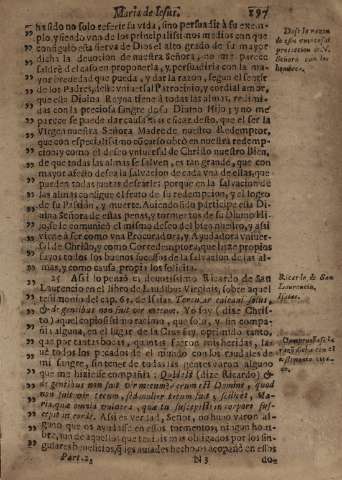 Maria de Iesus. 197
ha sido no solo referir su vida, sino persuadir à su exem-
plo, y siendo vno de los principalissimos medios con que
consiguiò esta sierva de Dios el alto grado de su mayor
dicha la deuocion de nuestra Señora, no me parece
saldrè del caso en proponerla, y persuadirla con la ma-
yor breuedad que pueda, y dar la razon, segun el sentir
de los Padres, desse vniuersal Patrocinio, y cordial amor,
que esta Diuina Reyna tiene à todas las almas, redimi-
das con la preciosa sangre de su Diuino Hijo, y no me
parece se puede dar causa mas eficaz desto, que el ser la
Virgen nuestra Señora Madre de nuestro Redemptor,
que con especialissimo
cion; y como el deseo vniuersal de Christo nuestro Bien,
de que todas las almas se salven, es tan grande, que con
mayor afecto desea la salvacion de cada vna de ellas, que
pueden todas juntas desearles: porque en la salvacion de
las almas consigue el fruto de su redempcion, y el logro
de su Passion, y muerte. Auiendo sido participe esta Di-
uina Señora de essas penas, y tormentos de su Diuino Hi-
jo, se le comunicò el mismo deseo del bien nuestro, y assi
viene à ser como vna Procuradora, y Ayudadora vniuer-
sal de Christo, y como Corredemptora, que haze propios
suyos todos los buenos sucessos de la salvacion de las al-
mas, y como causa propia los solicita.
25 Assi lo pensò el deuotissimo Ricardo de San
Laurencio en el libro de Laudibus Virginis, sobre aquel
testimonio del cap. 63. de Isaias. Torcular calcaui solus,
& de gentibus non est vir mecum. Yo soy (dize Chris-
to) aquel copiosissimo razimo, que solo, y sin compa-
ñia alguna, en el lugar de la Cruz fuy, oprimido tanto,
que por tantas bocas, quantas fueron mis heridas, la-
uè todos los pecados de el mundo con los raudales de
mi sangre, sin tener de todas las gentes varon alguno
que me hiziesse compañia: (dize Ricardo) &
de gentibus non fuit vir mecum: verum est Domine, quod
non fuit vir tecum, sed mulier tecum fuit, scilicet, Ma-
ria, quæ omnia vulnera, quæ tu suscepisti in corpore, sus-
cepit in corde. Assi es verdad, Señor, no huuo varon al-
guno que os ayudasse en essos tormentos, ni ningun hom-
bre, vn de aquellos que tenias mas obligados por los sin-
gulares beneficios, que les auiades hecho
Part. 2. N 3 do=
Dase la razon
Señora con los
hombres.
Ricardo, de San
Laurencio,
Isaias.